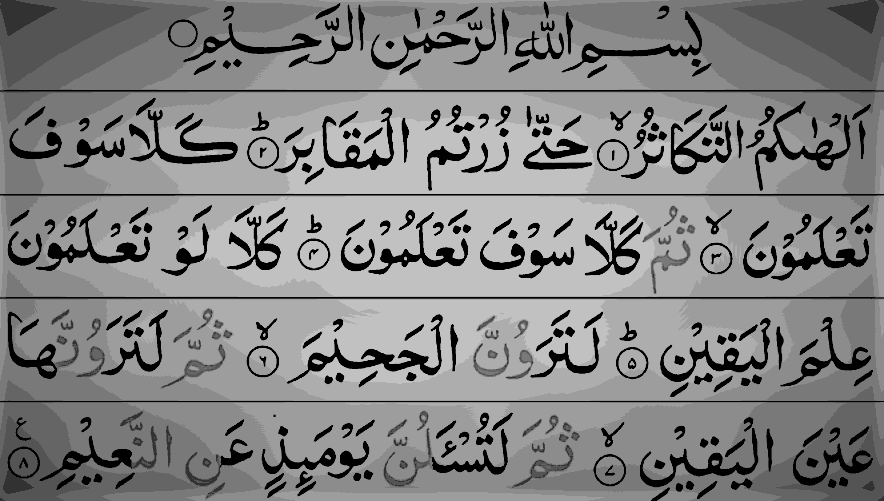 بِسْمِ اللّٰهِ الرَّحْمٰنِ الرَّحِیْمِ
اَلْهٰىكُمُ التَّكَاثُرُۙ۝۱ حَتّٰى زُرْتُمُ الْمَقَابِرَؕ۝۲ كَلَّا سَوْفَ
تَعْلَمُوْنَۙ۝۳ ثُمَّ كَلَّا سَوْفَ تَعْلَمُوْنَؕ۝۴ كَلَّا لَوْ تَعْلَمُوْنَ
عِلْمَ الْیَقِیْنِؕ۝۵ لَتَرَوُنَّ الْجَحِیْمَۙ۝۶ ثُمَّ لَتَرَوُنَّهَا
عَیْنَ الْیَقِیْنِۙ۝۷ ثُمَّ لَتُسْـَٔلُنَّ یَوْمَىِٕذٍ عَنِ النَّعِیْمِ۝۸ ع